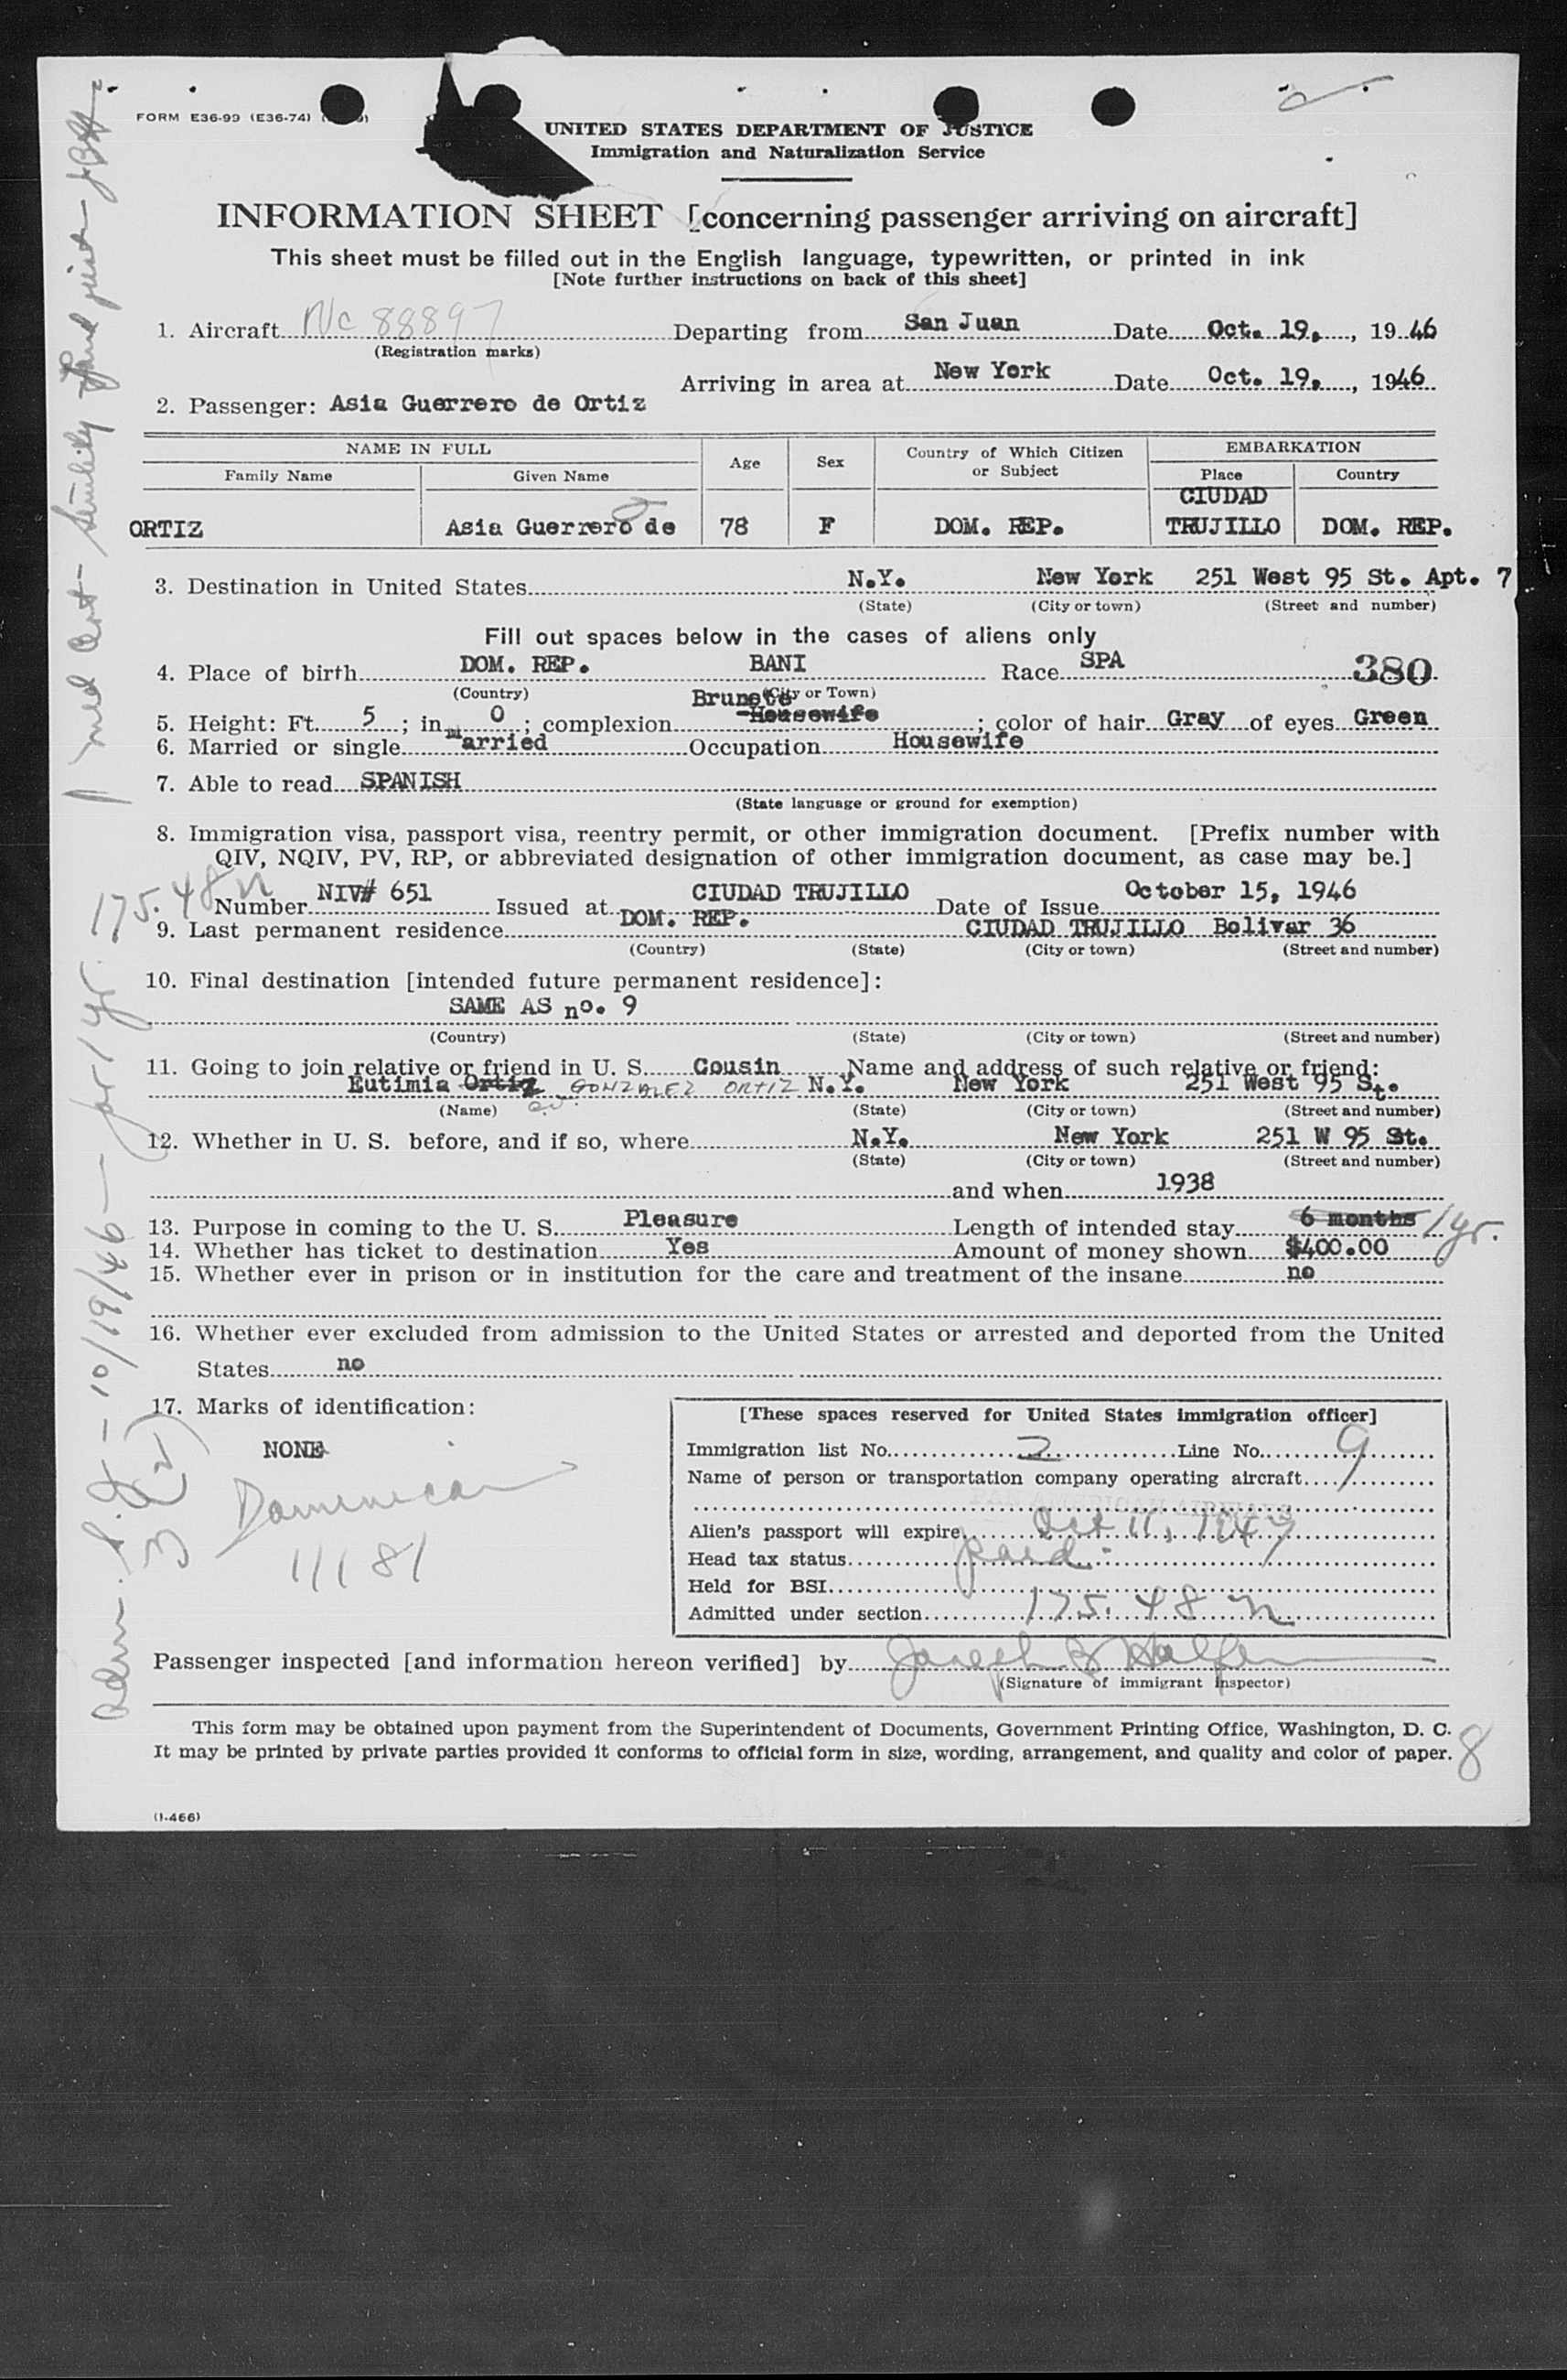 FORM E36-99 (E36-74)
UNITED STATES DEPARTMENT OF JUSTICE
Immigration and Naturalization Service
INFORMATION SHEET [concerning passenger arriving on aircraft]
This sheet must be filled out in the English language, typewritten, or printed in ink
[Note further instructions on back of this sheet]
1. Aircraft Nc 88897 Departing from San Juan Date Oct. 19, , 19 46
(Registration marks)
Arriving in area at New York Date Oct. 19, , 1946
2. Passenger: Asia Guerrero de Ortiz
NAME IN FULL Age Sex Country of Which Citizen or Subject EMBARKATION
Family Name Given Name Place Country
ORTIZ Asia Guerrero de 78 F DOM. REP. CIUDAD TRUJILLO DOM. REP.
3. Destination in United States N.Y. New York 251 West 95 St. Apt. 7
(State) (City or town) (Street and number)
Fill out spaces below in the cases of aliens only
4. Place of birth DOM. REP. BANI Race SPA 380
(Country) (City or Town)
Brunete
5. Height: Ft. 5 ; in. 0 ; complexion Housewife ; color of hair Gray of eyes Green
6. Married or single married Occupation Housewife
7. Able to read SPANISH
(State language or ground for exemption)
8. Immigration visa, passport visa, reentry permit, or other immigration document. [Prefix number with
QIV, NQIV, PV, RP, or abbreviated designation of other immigration document, as case may be.]
Number NIV# 651 Issued at CIUDAD TRUJILLO Date of Issue October 15, 1946
9. Last permanent residence DOM. REP. CIUDAD TRUJILLO Bolivar 36
(Country) (State) (City or town) (Street and number)
10. Final destination [intended future permanent residece]:
SAME AS no. 9
(Country) (State) (City or town) (Street and number)
11. Going to join relative or friend in U. S. Cousin Name and address of such relative or friend:
Eutimia Ortiz GONZALEZ ORTIZ N.Y. New York 251 West 95 St.
(Name) (State) (City or town) (Street and number)
12. Whether in U. S. before, and if so, where N.Y. New York 251 W 95 St.
(State) (City or town) (Street and number)
and when 1938
13. Purpose in coming to the U. S. Pleasure Length of intended stay 6 months 1 yr.
14. Whether has ticket to destination Yes Amount of money shown $400.00
15. Whether ever in prison or in institution for the care and treatment of the insane no
16. Whether ever excluded from admission to the United States or arrested and deported from the United
States no
17. Marks of identification:
NONE
Dominican
11181
[These spaces reserved for United States immigration officer]
Immigration list No. 2 Line No. 9
Name of person or transportation company operating aircraft
PAN AMERICAN AIRWAYS
Alien's passport will expire Oct 11, 1947
Head tax status paid
Held for BSI
Admitted under section 175.48 n
Passenger inspected [and information hereon verified] by Joseph B Halfen
(Signature of immigrant inspector)
This form may be obtained upon payment from the Superintendent of Documents, Government Printing Office, Washington, D. C.
It may be printed by private parties provided it conforms to official form in size, wording, arrangement, and quality and color of paper.
8
(I-466)
10/19/46 — for 1 yr. 175.48 n
med Cert - Senility